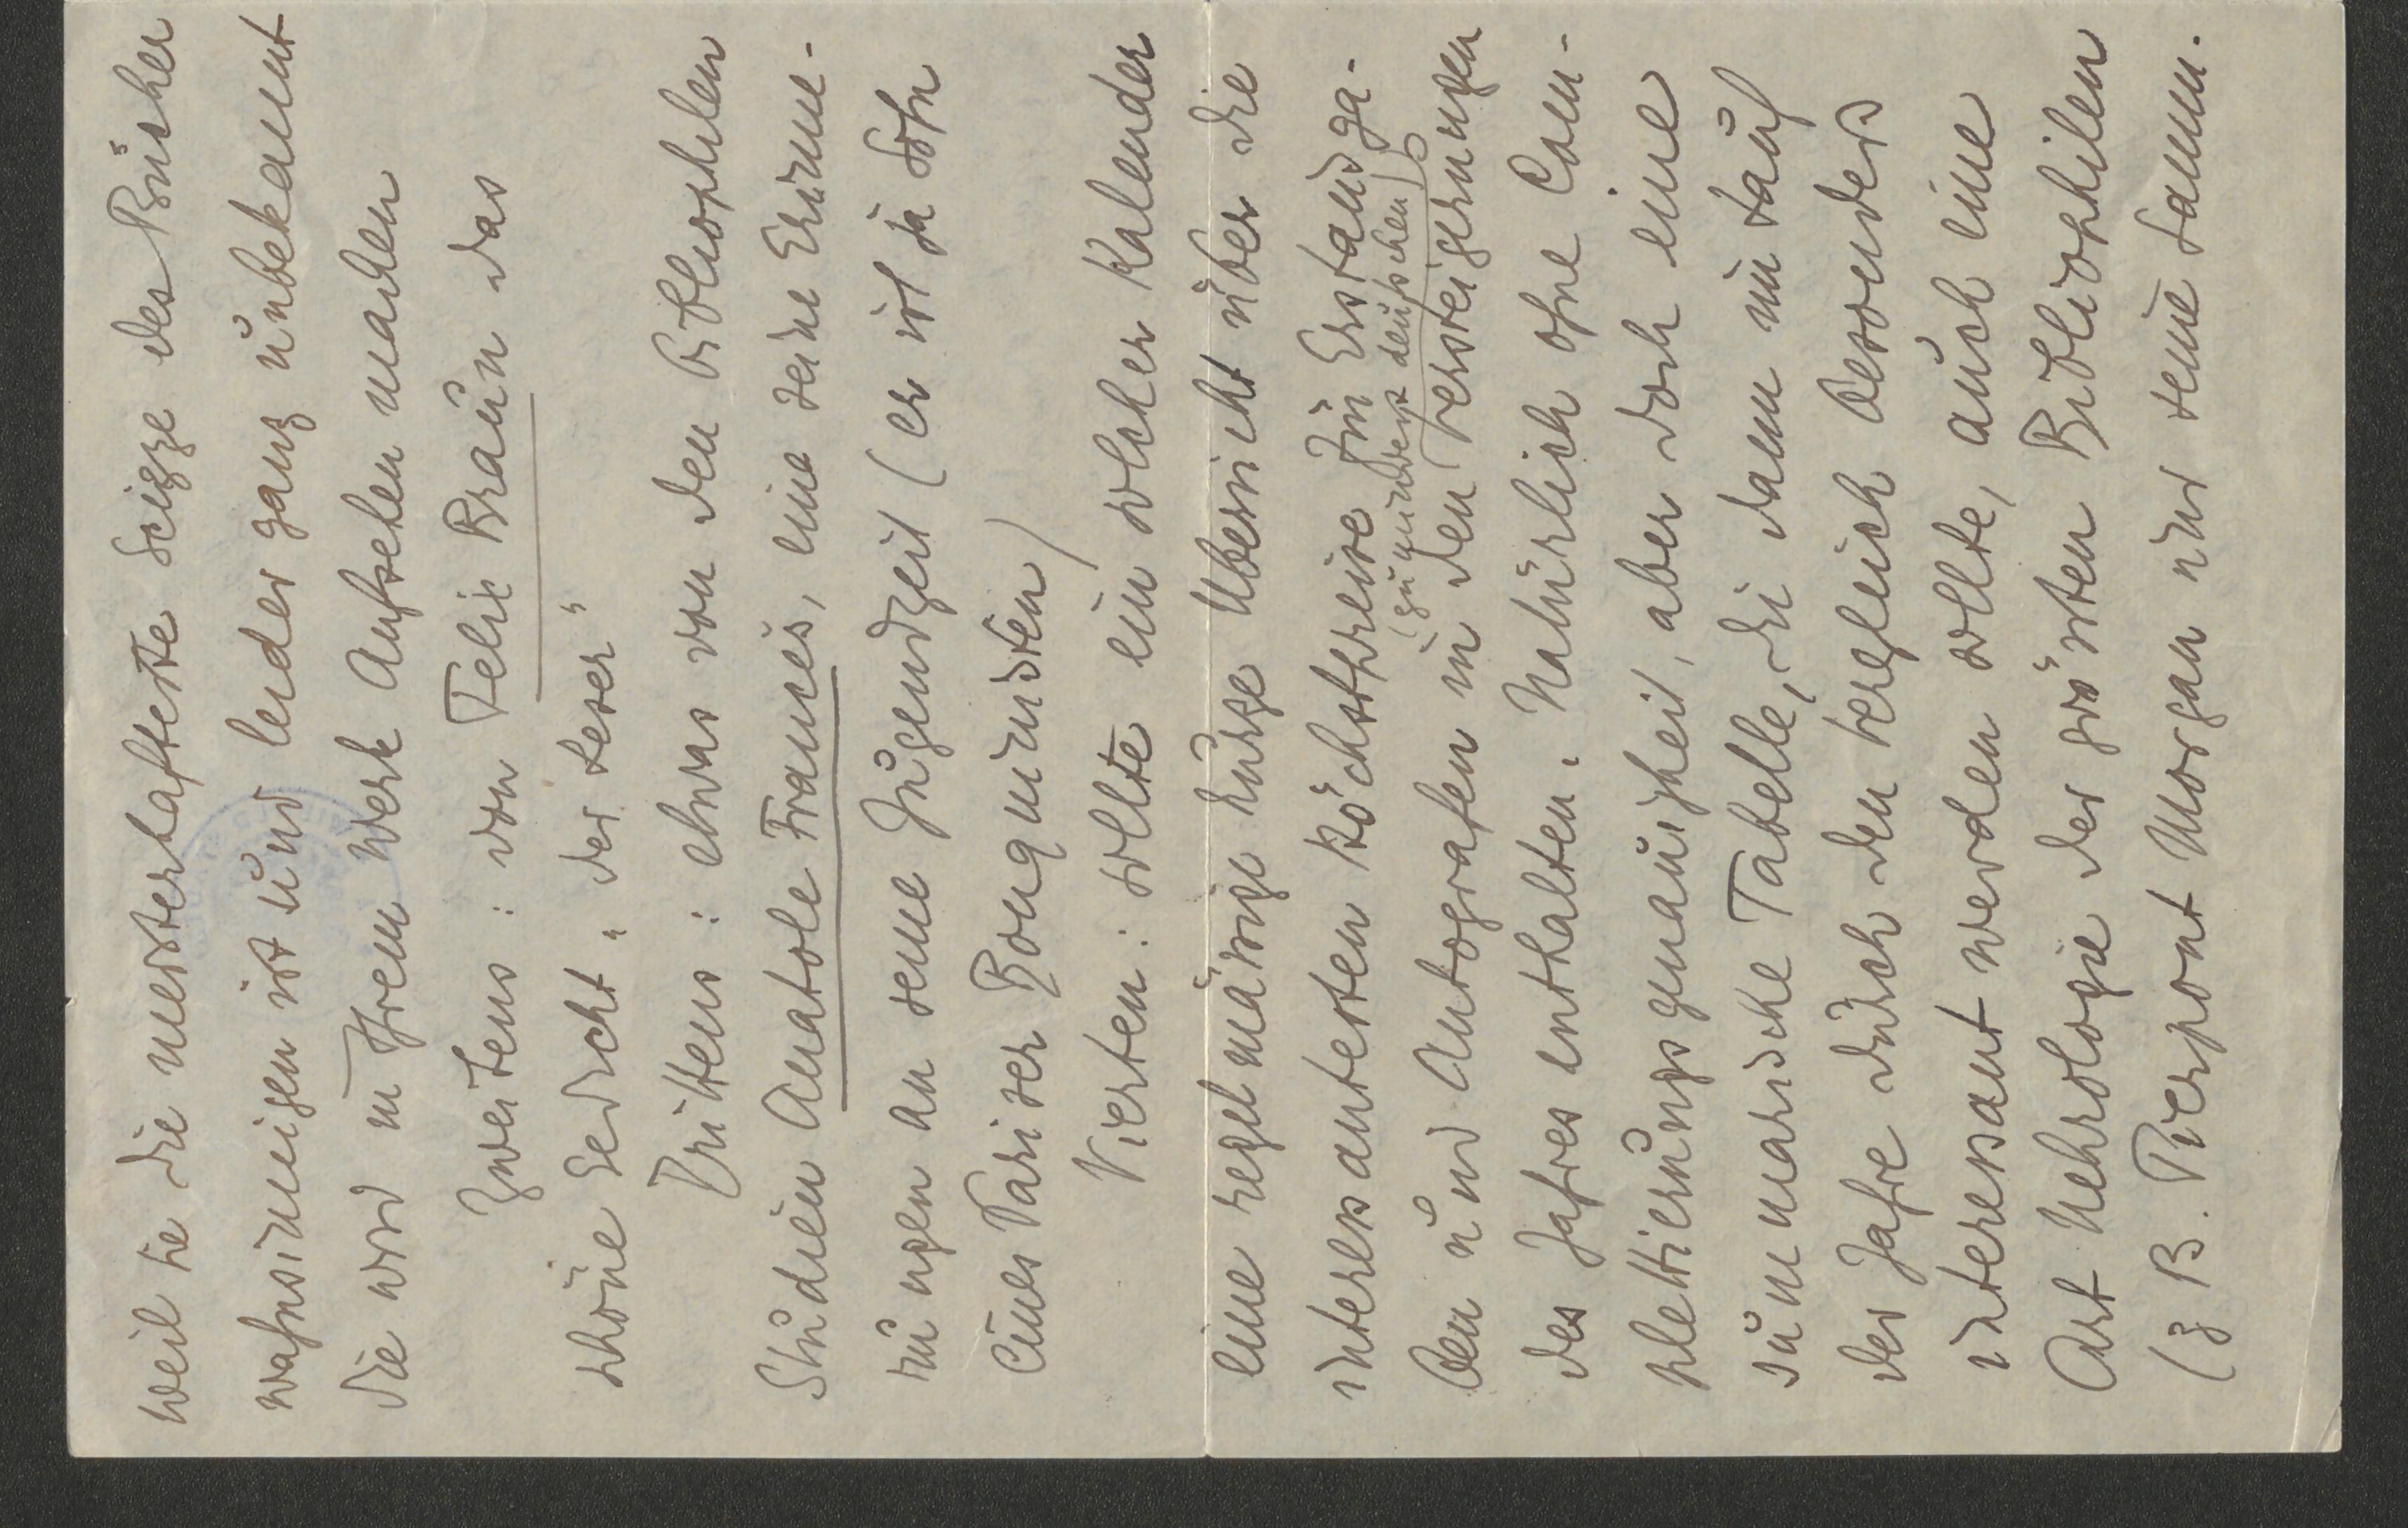 weil sie die meisterhafteste Scizze des Bücher
wahnsinnigen ist und leider ganz unbekannt
die wird in Ihrem Werk Aufsehen machen
Zweitens: von Felix Braun das
schöne Gedicht „der Leser“
Drittens: etwas von den Bibliophilen
Studien Anatole Frances, eine seine Erinne-
rungen an seine Jugendzeit (er ist ja Sohn
eines Pariser Bouquinisten)
Viertens: sollte ein solcher Kalender
eine regelmässige kurze Übersicht über die
interessantesten höchstpreise für Erstausga-
ben und Autografen in den (zumindest deutschen) Versteigerungen
des Jahres enthalten. Natürlich ohne Com-
plettierungsgenauigkeit, aber doch eine
summarische Tabelle, die dann im Lauf
der Jahre durch den Vergleich besonders
interessant werden sollte, auch eine
Art Nekrologie der grössten Bibliophilen
(z B. Pierpont Morgan und seine Samm.